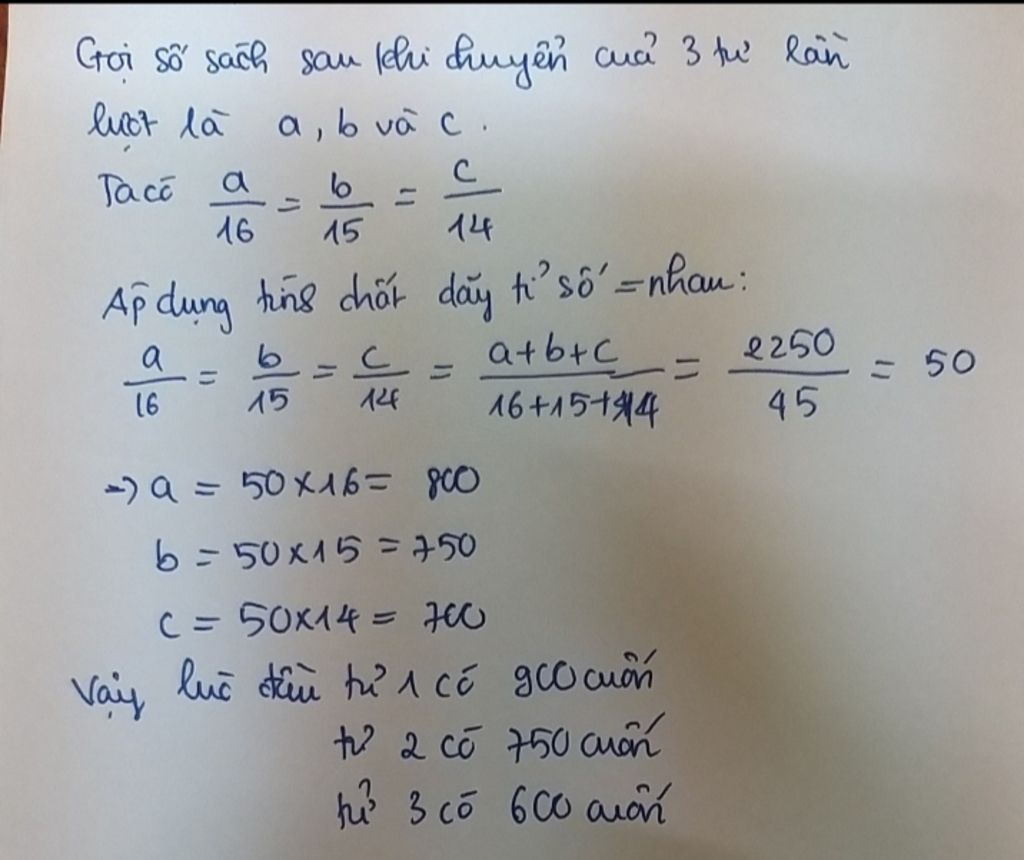 Gọi số sách sau khi chuyển của 3 tủ lần
lượt là a, b và c.
Ta có a/16 = b/15 = c/14
Áp dụng tính chất dãy tỉ số = nhau:
a/16 = b/15 = c/14 = (a+b+c)/(16+15+14) = 2250/45 = 50
→ a = 50×16 = 800
b = 50×15 = 750
c = 50×14 = 700
Vậy lúc đầu tủ 1 có 900 cuốn
tủ 2 có 750 cuốn
tủ 3 có 600 cuốn